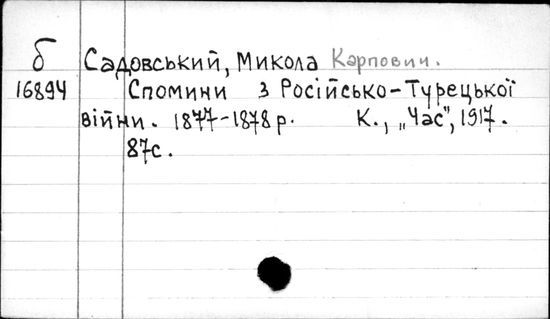 б Садовський, Микола Карпович.
16894 Спомини з Російсько-Турецької
війни. 1877-1878 р. К., „Час", 1917.
87с.